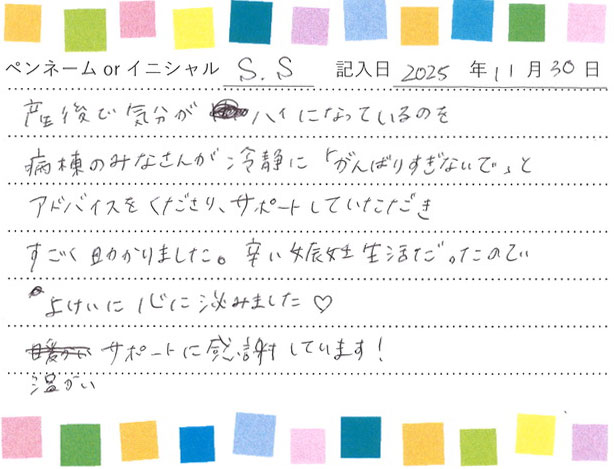 ペンネーム or イニシャル S.S 記入日 2025 年 11 月 30 日
産後で気分がハイになっているのを
病棟のみなさんが冷静に「がんばりすぎないで」と
アドバイスをくださり、サポートしていただき
すごく助かりました。辛い妊娠生活だったので
よけいに心に沁みました♡
サポートに感謝しています!
温かい